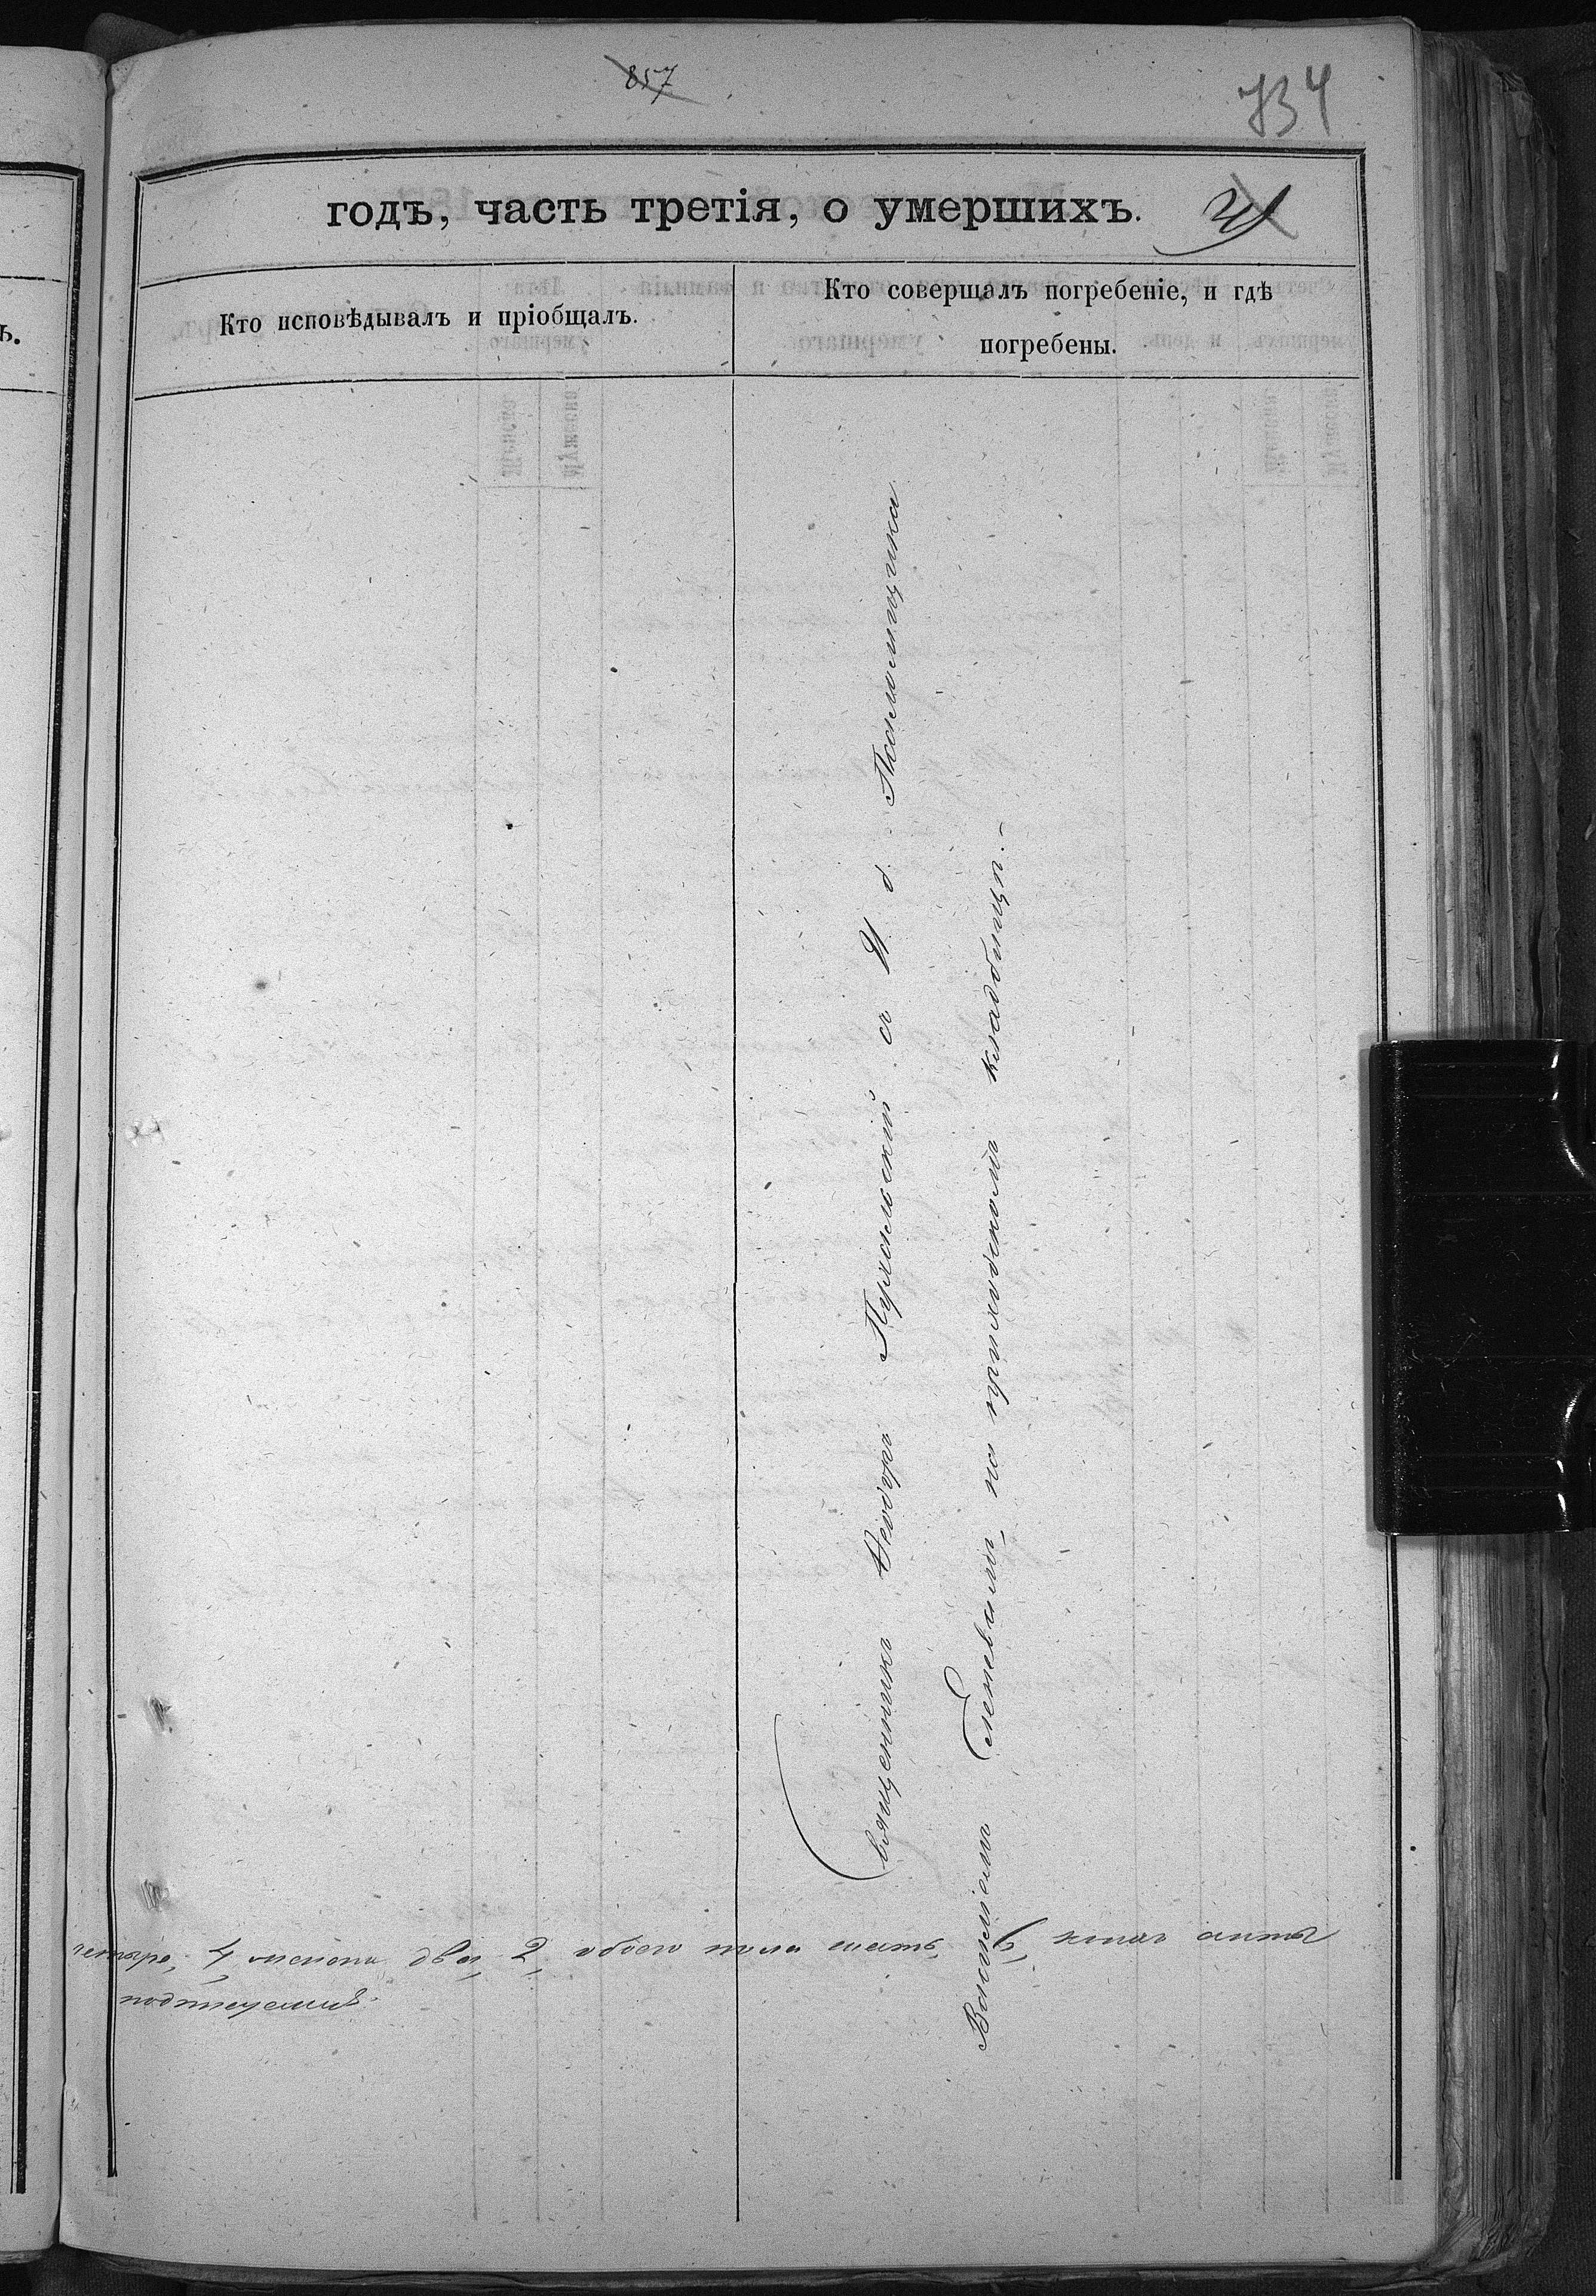 857
734
годъ, часть третія, о умершихъ.
Кто исповѣдывалъ и пріобщалъ.
Кто совершалъ погребеніе, и гдѣ
погребены.
Священникъ Ѳеодоръ Пухальскій съ И. д. Псаломщика
Василіемъ на приходскомъ кладбищѣ.
четыре, 4, женска два, 2, обоего пола шесть, 6,